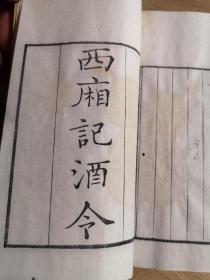 西廂記酒令